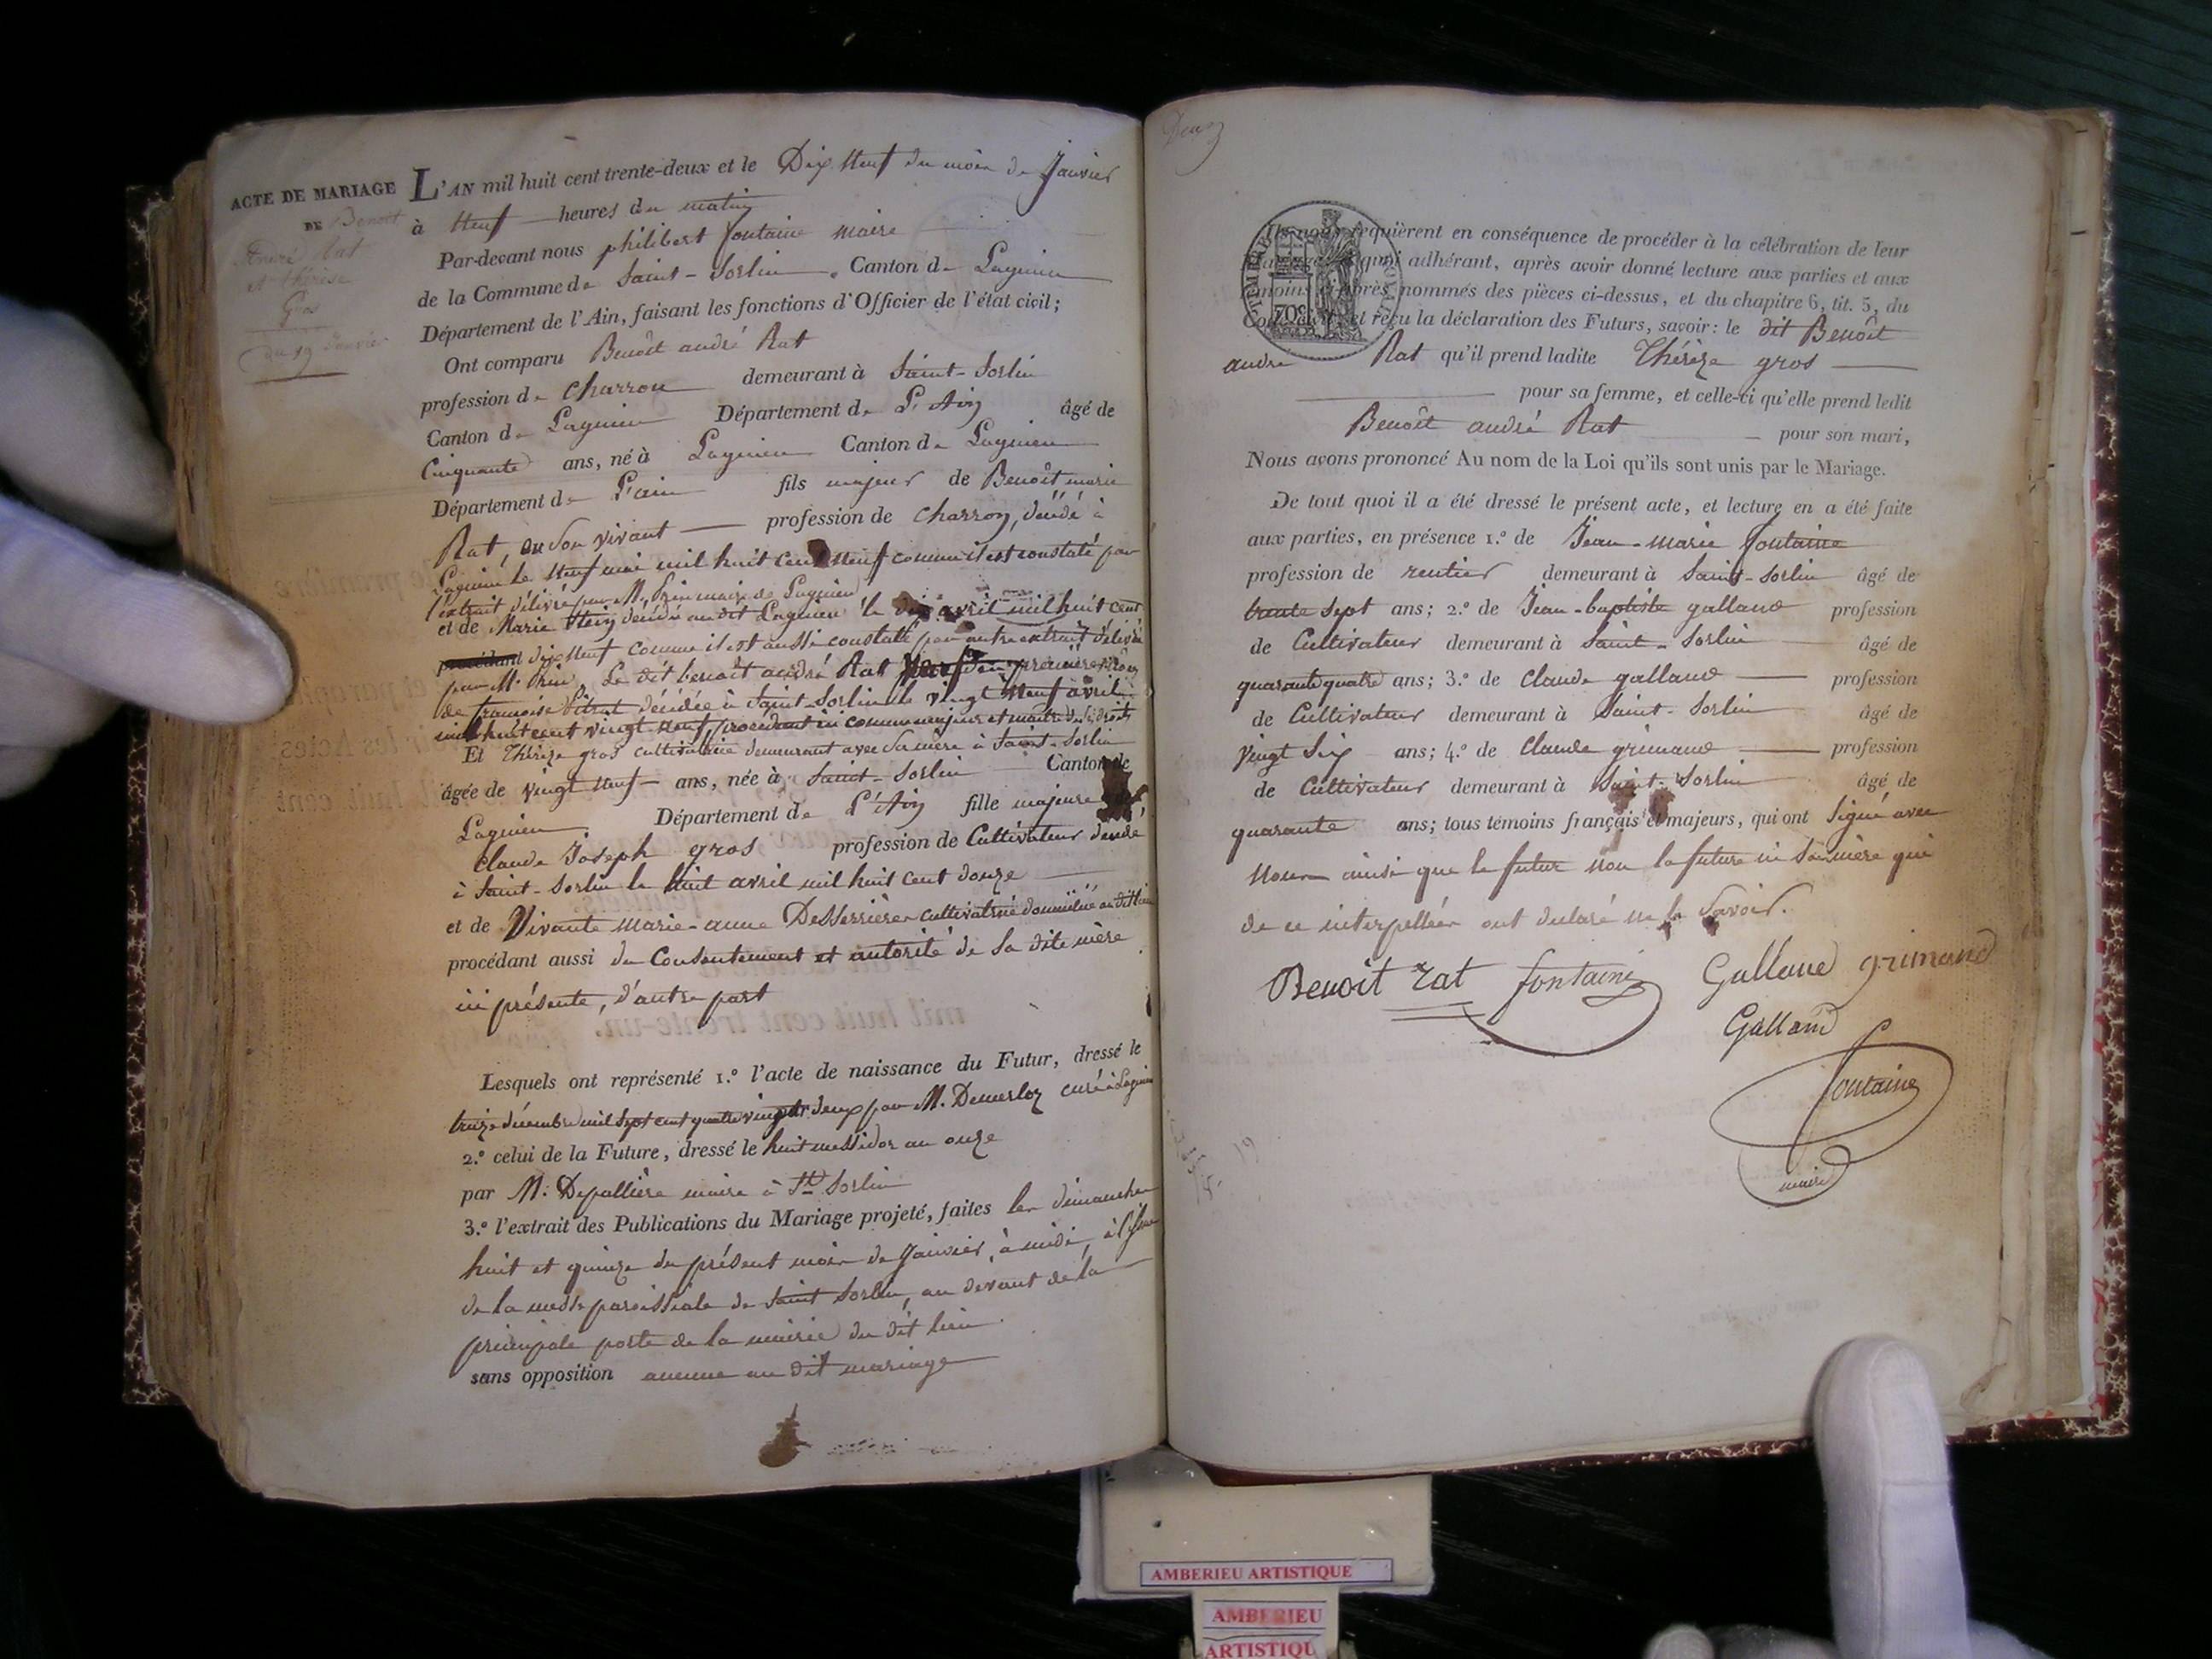 ACTE DE MARIAGE
DE Benoit
André Rat
et thérèse
Gros
du 19 Janvier
L'AN mil huit cent trente-deux et le Dix Neuf du mois de Janvier
à Neuf heures du matin
Par-devant nous philibert fontaine maire
de la Commune de Saint-Sorlin Canton de Lagnieu
Département de l'Ain, faisant les fonctions d'Officier de l'état civil;
Ont comparu Benoît andré Rat
profession de charron demeurant à Saint-Sorlin
Canton de Lagnieu Département de L'Ain âgé de
Cinquante ans, né à Lagnieu Canton de Lagnieu
Département de L'ain fils majeur de Benoît marie
Rat, en son vivant profession de charron, décédé à
Lagnieu le Neuf mai mil huit cent Neuf comme il est constaté par
l'extrait délivré par M. maire de Lagnieu
et de Marie décédée au dit Lagnieu le avril mil huit cent
dix Neuf comme il est aussi constaté par autre extrait délivré
par M. Le dit benoit andré Rat veuf en premières
de françoise décédée à Saint-Sorlin le vingt Neuf avril
mil huit cent vingt Neuf, procédant comme majeur et maître de ses droits
Et Thérèze gros cultivatrice demeurant avec Sa mère à Saint-Sorlin
âgée de vingt Neuf ans, née à Saint-Sorlin Canton de
Lagnieu Département de L'Ain fille majeure
Claude Joseph gros profession de Cultivateur décédé
à Saint-Sorlin le huit avril mil huit cent douze
et de Vivante marie-anne Desserrières cultivatrice domiciliée au dit lieu
procédant aussi du Consentement et autorité de Sa dite mère
ici présente, d'autre part
Lesquels ont représenté 1.º l'acte de naissance du Futur, dressé le
treize décembre mil sept cent quatre vingt deux par M. Demerloz curé à Lagnieu
2.º celui de la Future, dressé le huit messidor an onze
par M. Depallière maire à St Sorlin
3.º l'extrait des Publications du Mariage projeté, faites les dimanches
huit et quinze du présent mois de Janvier, à midi, à l'issue
de la messe paroissiale de Saint Sorlin, au devant de la
principale porte de la mairie du dit lieu
sans opposition aucune au dit mariage
Deux
TIMBRE ROYAL
70c
Ils nous requièrent en conséquence de procéder à la célébration de leur
mariage. A quoi adhérant, après avoir donné lecture aux parties et aux
témoins ci-après nommés des pièces ci-dessus, et du chapitre 6, tit. 5, du
Code civil, et reçu la déclaration des Futurs, savoir: le dit Benoît
andré Rat qu'il prend ladite Thérèze gros
pour sa femme, et celle-ci qu'elle prend ledit
Benoît andré Rat pour son mari,
Nous avons prononcé Au nom de la Loi qu'ils sont unis par le Mariage.
De tout quoi il a été dressé le présent acte, et lecture en a été faite
aux parties, en présence 1.º de Jean-marie fontaine
profession de rentier demeurant à Saint-Sorlin âgé de
trente Sept ans; 2.º de Jean-baptiste galland profession
de Cultivateur demeurant à Saint-Sorlin âgé de
quarante quatre ans; 3.º de Claude galland profession
de Cultivateur demeurant à Saint-Sorlin âgé de
vingt Six ans; 4.º de Claude grimand profession
de Cultivateur demeurant à Saint-Sorlin âgé de
quarante ans; tous témoins français et majeurs, qui ont Signé avec
Nous ainsi que le futur non la future ni Sa mère qui
de ce interpellées ont déclaré ne le Savoir.
Benoit rat fontaine Galland grimand
Galland
fontaine
maire
AMBERIEU ARTISTIQUE
AMBERIEU
ARTISTIQU